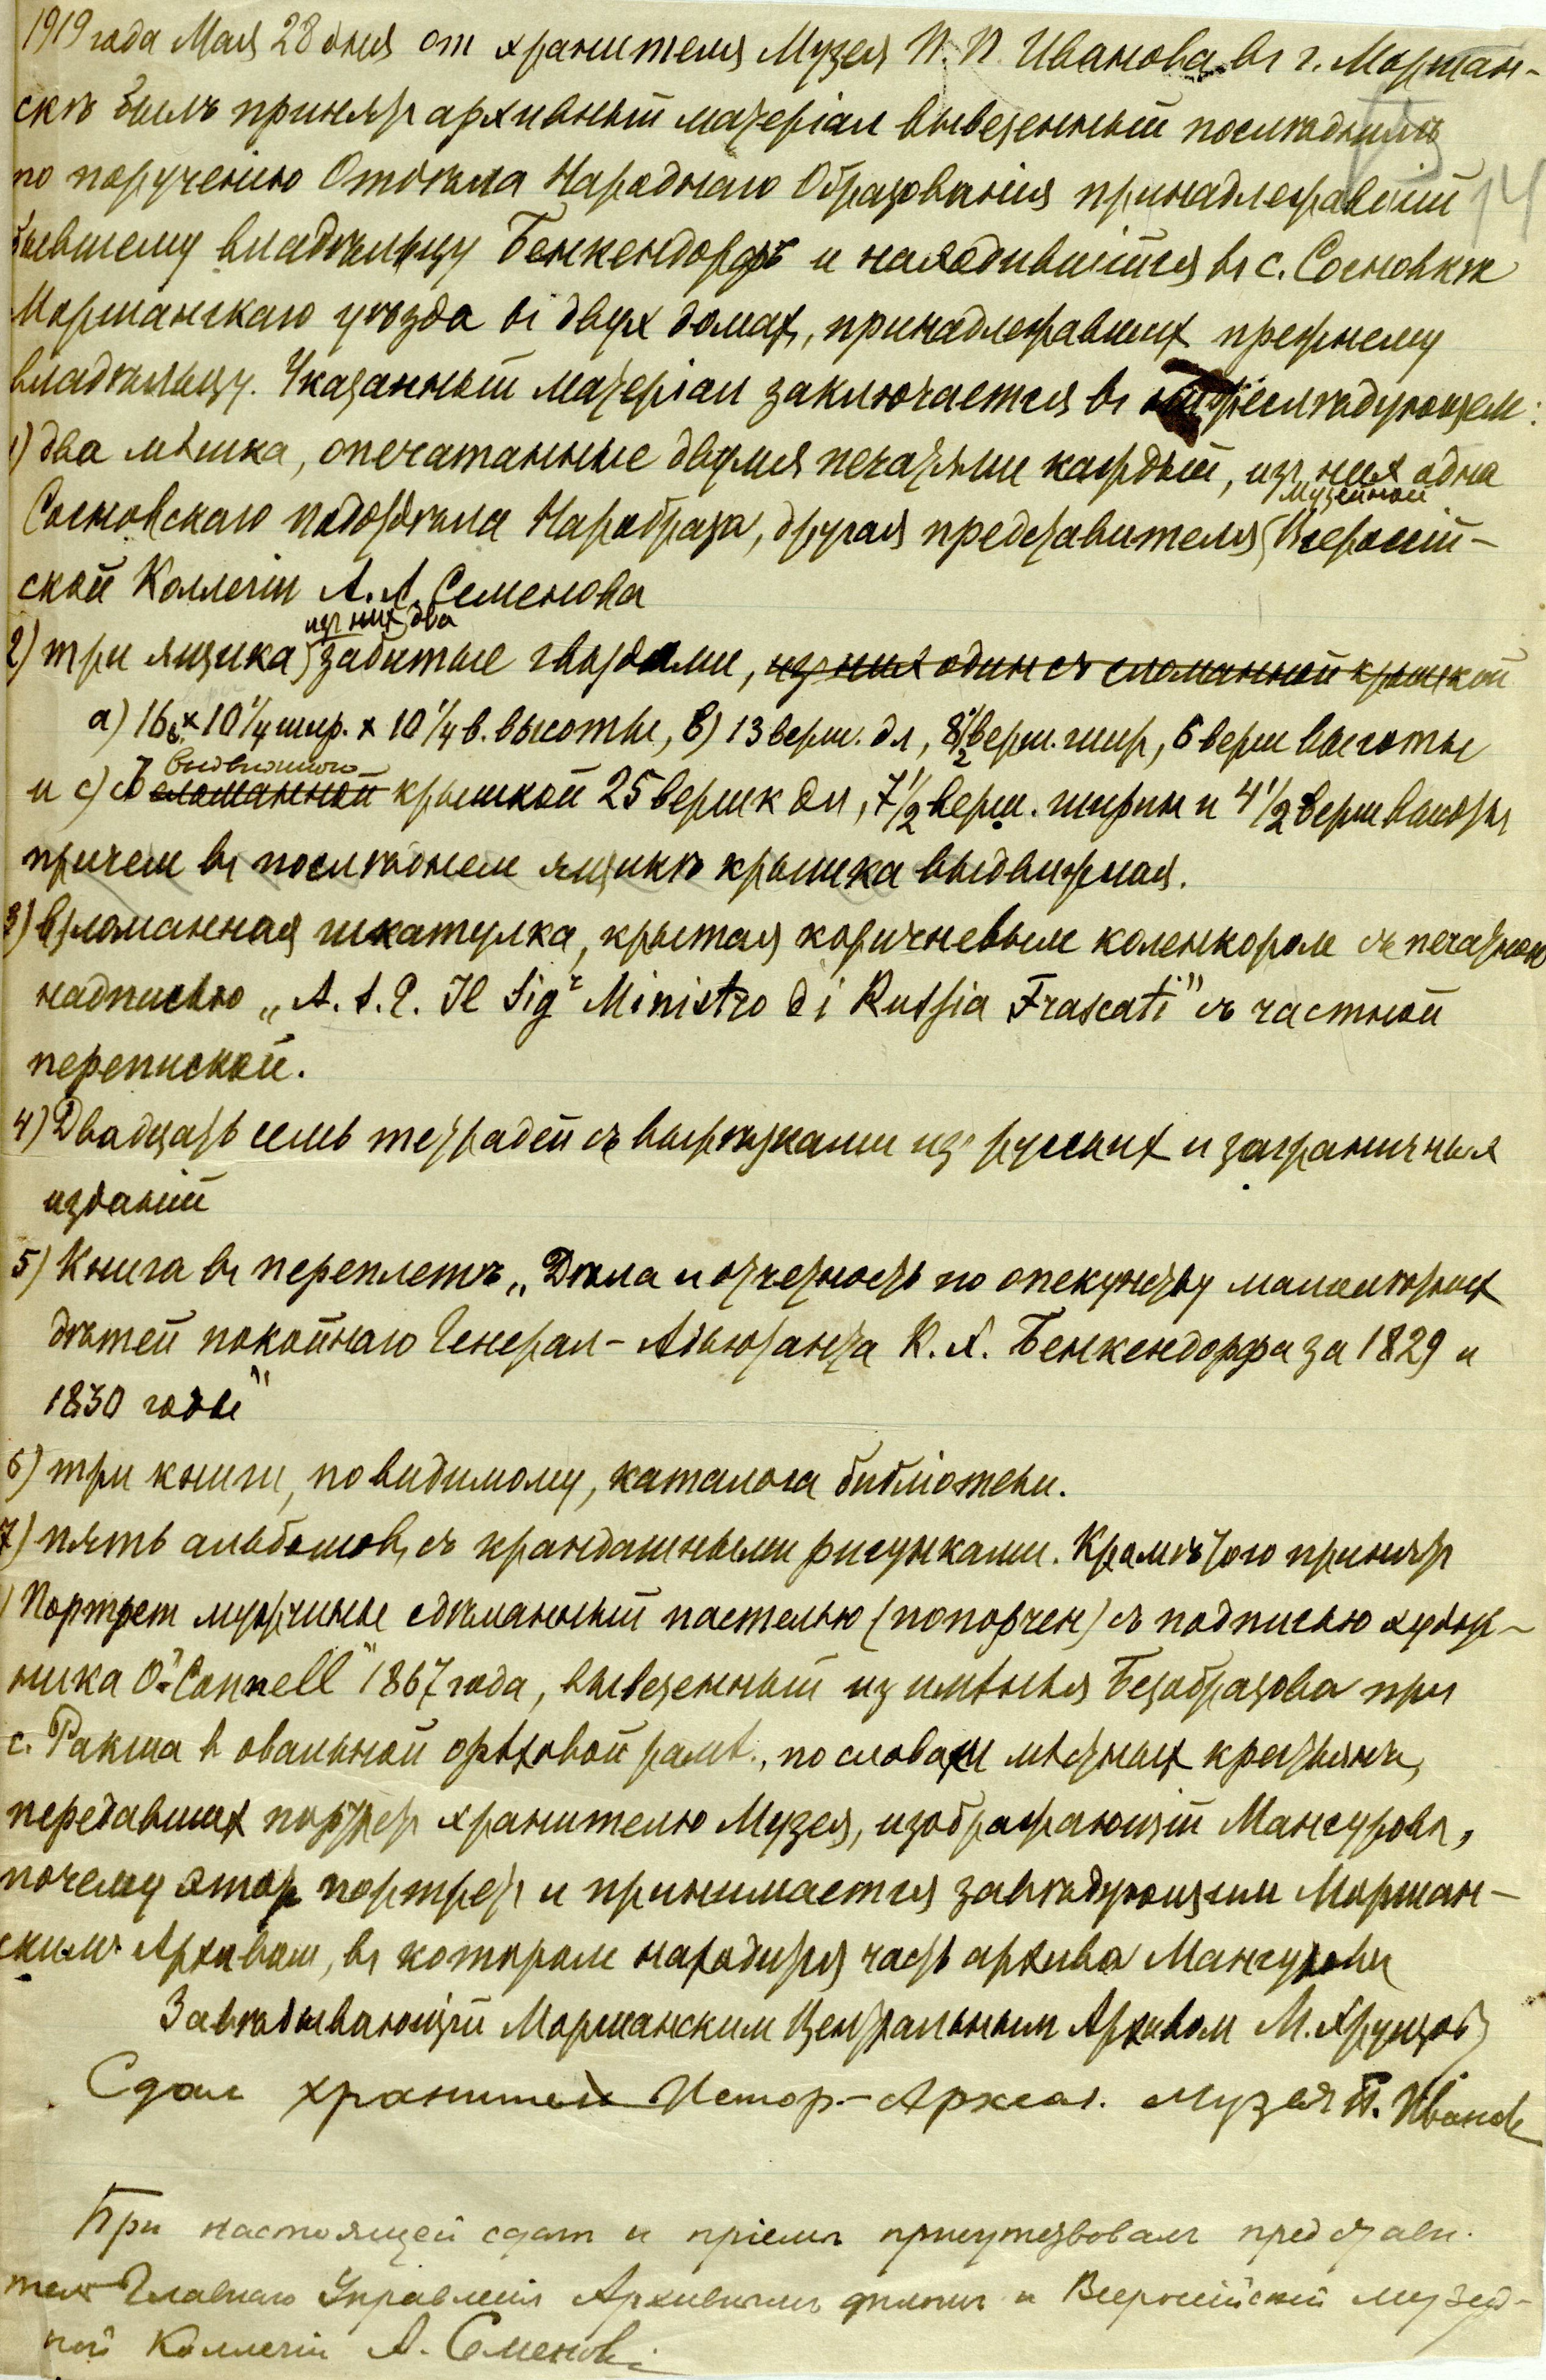 1919 года Мая 28 дня от хранителя Музея П. П. Иванова въ г. Моршан-
скѣ былъ принят архивный матерiал вывезенный послѣднимъ
по порученiю Отдѣла Народнаго Образованiя принадлежавшiй
бывшему владѣльцу Бенкендорфъ и находившiйся въ с. Сосновкѣ
14
Моршанскаго уѣзда въ двух домах, принадлежавших прежнему
владѣльцу. Указанный матерiал заключается въ слѣдующем:
1) два мѣшка, опечатанные двумя печатями каждый, из них одна
Музейной
Сосновскаго подотдѣла Наробраза, другая представителя Всероссiй-
ской Коллегiи А. А. Семенова
из них два
2) три ящика забитые гвоздами, из них один съ сломанной крышкой
а) 16 в. x 10 1/4 шир. x 10 1/4 в. высоты, в) 13 верш. дл, 8 1/2 верш. шир, 6 верш высоты
выдвижного
и с) съ сломанной крышкой 25 вершк дл, 7 1/2 верш. ширин и 4 1/2 верш высоты
причем въ послѣднем ящикѣ крышка выдвижная.
3) взломанная шкатулка, крытая коричневым коленкором съ печатной
надписью „A. S. E. Il Sigr Ministro di Russia Frascati" съ частной
перепиской.
4) Двадцать семь тетрадей съ вырѣзками из русских и заграничных
изданiй
5) Книга въ переплетѣ „Дѣла и отчетность по опекунству малолѣтних
дѣтей покойнаго Генерал-Адьютанта К. Х. Бенкендорфа за 1829 и
1830 годы"
6) три книги, повидимому, каталога библiотеки.
7) пять альбомов съ крандашными рисунками. Кромѣ того принят
Портрет мужчины сдѣланный пастелью (попорчен) съ подписью худож-
ника O'Connell" 1867 года, вывезенный из имѣнья Безобразова при
с. Ракша в овальной орѣховой рамѣ, по словам мѣстных крестьянъ,
передавших портрет хранителю Музея, изображающiй Мансурова,
почему этот портрет и принимается завѣдующим Моршан-
ским Архивом, въ котором находится часть архива Мансурова
Завѣдывающiй Моршанским Центральным Архивом М. Хрущов
Сдал хранитель Истор.-Археол. музея П. Иванов
При настоящей сдачѣ и прiемѣ присутствовалъ представи-
тель Главнаго Управленiя Архивнымъ дѣломъ и Всероссiйской музей-
ной Коллегiи А. Семенов